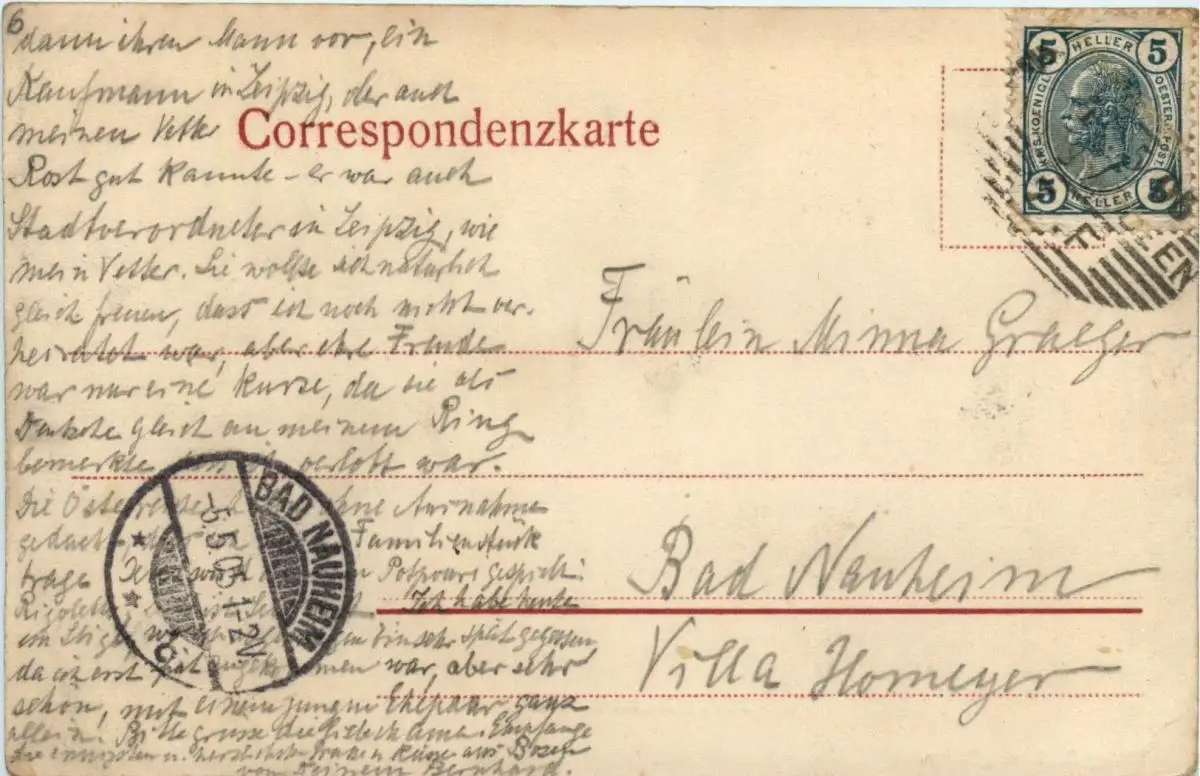 6
dann ihren Mann vor, ein
Kaufmann in Leipzig, der auch
meinen Vetter
Rost gut kannte – er war auch
Stadtverordneter in Leipzig, wie
mein Vetter. Sie wollte sich natürlich
gleich freuen, dass ich noch nicht ver-
heiratet war, aber ihre Freude
war nur eine kurze, da sie als
gleich an meinem Ring
bemerkte, verlobt war.
Die Ohne Ausnahme
Familienstück
trage Potpouri gespielt:
Rigoletto Ich habe heute
sehr spät gegessen
da ich erst war, aber sehr
schön, mit einem jungen Ehepaar ganz
allein. Bitte grüsse die liebe Mama. Empfange
die innigsten u. herzlichsten Küsse aus Bozen
von Deinem Bernhard.
Correspondenzkarte
5 HELLER 5
KAIS. KOENIGL. OESTERR. POST
5 HELLER 5
Fräulein Minna Graeger
Bad Nauheim
Villa Homeyer
BAD NAUHEIM
-5.5.04. 1-2N.